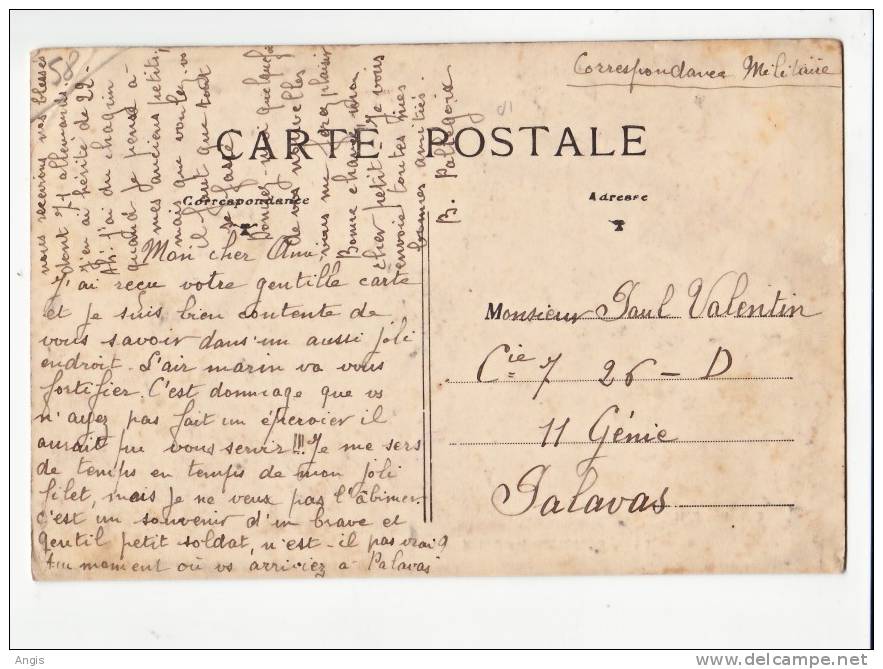 58
Correspondance Militaire
CARTE POSTALE
Correspondance
Adresse
Mon cher Ami,
J'ai reçu votre gentille carte
et je suis bien contente de
vous savoir dans un aussi joli
endroit. L'air marin va vous
fortifier. C'est dommage que vs
n'ayez pas fait un épervier il
aurait pu vous servir!!! Je me sers
de temps en temps de mon joli
filet, mais je ne veux pas l'abîmer
c'est un souvenir d'un brave et
gentil petit soldat, n'est-il pas vrai?
Au moment où vs arriviez à Palavas
nous recevions nos blessés
dont 7 allemands.
J'en ai hérité de 22.
Ah! j'ai du chagrin
quand je pense à
mes anciens petits,
mais que voulez-vs
il faut que tout
se passe
Donnez-moi quelquefois
de vos nouvelles
vous me ferez plaisir
Bonne chance, mon
cher petit. Je vous
envoie toutes mes
bonnes amitiés.
Monsieur Paul Valentin
Cie 7 26 - D
11 Génie
Palavas
Angis
www.delcampe.net